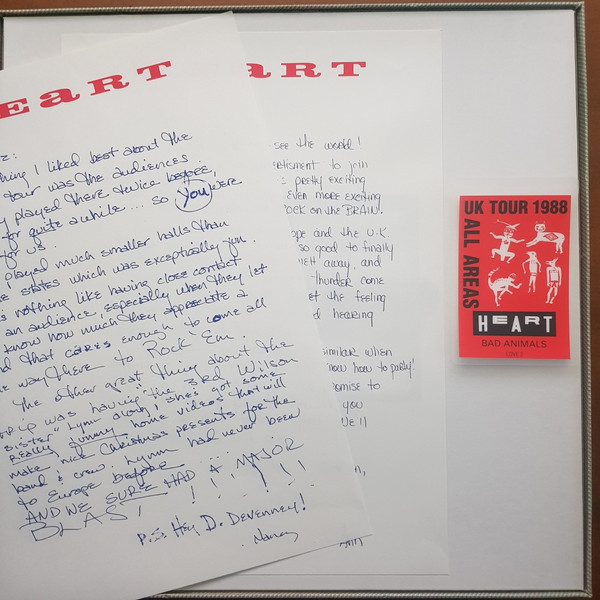 EART
thing I liked best about the
tour was the audiences
played there twice before,
for quite a while... so you were
for us.
played much smaller halls than
states which was exceptionally fun.
nothing like having close contact
an audience, especially when they let
know how much they appreciate a
that cares enough to come all
way there to Rock Em.
The other great thing about the
trip was having "the 3rd Wilson
sister" Lynn along, she's got some
really funny home videos that will
make nice Christmas presents for the
band & crew. Lynn had never been
to Europe before ...
AND WE SURE HAD A MAJOR
BLAST! ! ! ! ! ! !
P.S. Hey D. Devenney!
Nancy
ART
see the world!
to join
pretty exciting
Even more exciting
on the BRAIN.
and the U.K.
so good to finally
away, and
thunder come
the feeling
hearing
similar when
now how to party!
to
you
UK TOUR 1988
ALL AREAS
HEART
BAD ANIMALS